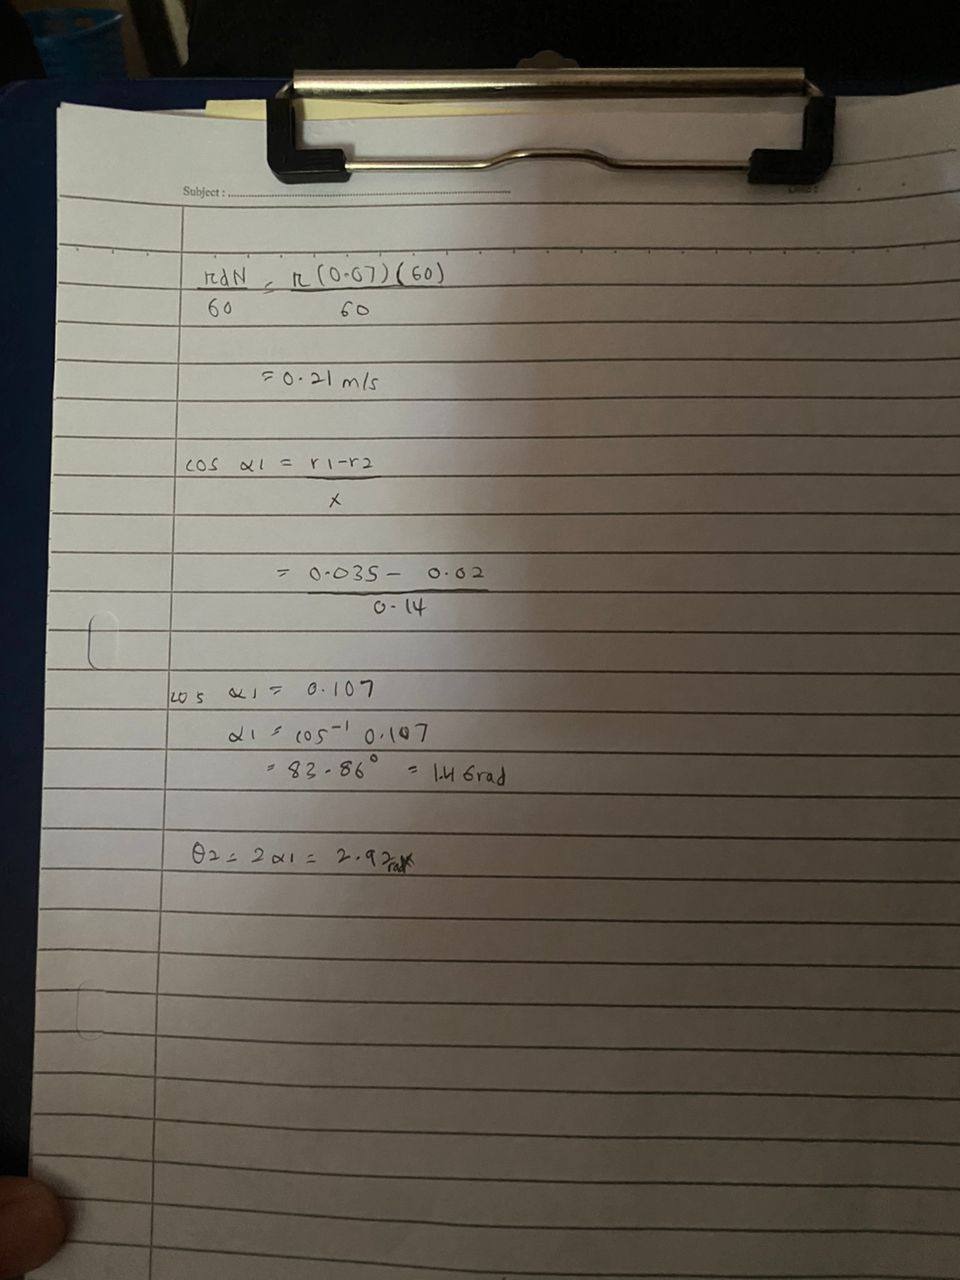 Subject :
πdN / 60 = π(0.07)(60) / 60
= 0.21 m/s
cos α1 = r1-r2 / x
= 0.035 - 0.02 / 0.14
cos α1 = 0.107
α1 = cos⁻¹ 0.107
= 83.86° = 1.46rad
θ2 = 2α1 = 2.92rad